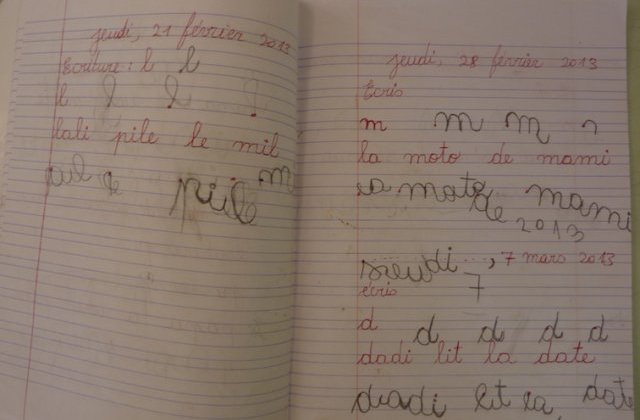 jeudi, 21 février 2013
Ecriture : l l
l l l l
lali pile le mil
pil le pile m
jeudi, 28 février 2013
Ecris
m m m
la moto de mami
la moto de mami
2013
jeudi ..., 7 mars 2013
7
écris
d d d d d
dadi lit la date
dadi lit la date